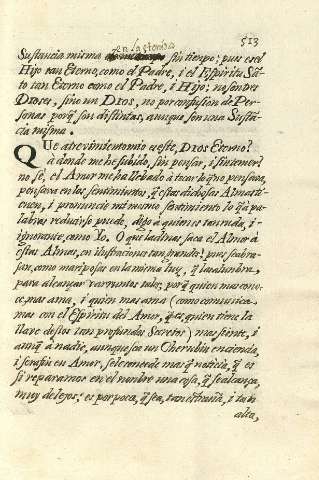 513
en la etern
Sustancia misma sin tiempo; pues es el
Hijo tan Eterno, como el Padre, i el Espiritu Sã-
to tan Eterno como el Padre, i Hijo; no son tres
Dioses, sino un Dios, no por confusion de Per-
sonas porq̃ son distintas, aunque son una Sustã-
cia misma.
Que atrevimiento mio es este, Dios Eterno?
à donde me he subido, sin pensar, i sin temer?
no sé, el Amor me ha llebado à tocar lo q̃ no pensava,
pensava en los sentimientos, q̃ estas dichosas Almas ti-
enen, i pronuncie mi mismo sentimiento lo q̃ à pa-
labras reducirse puede, digo à quien es tan ruda, i
ignorante, como Yo. O que ladinas saca el Amor à
estas Almas, en ilustraciones tan grandes! pues se abra-
san, como mariposas en la misma luz, q̃ las alumbra,
para alcanzar barruntos tales, porq̃ quien mas cono-
ce, mas ama, i quien mas ama (como comunica
mas con el Espiritu del Amor, q̃ es quien tiene la
llave destos tan profundos Secretos) mas siente, i
aunq̃ à nadie, aunque sea un Cherubin encienda,
i serafin en Amor, se le concede mas q̃ noticia, q̃ es
si reparamos en el nombre una cosa, q̃ se alcança
muy de lejos; es por poca, q̃ sea, tan estraña, i tan
alta,